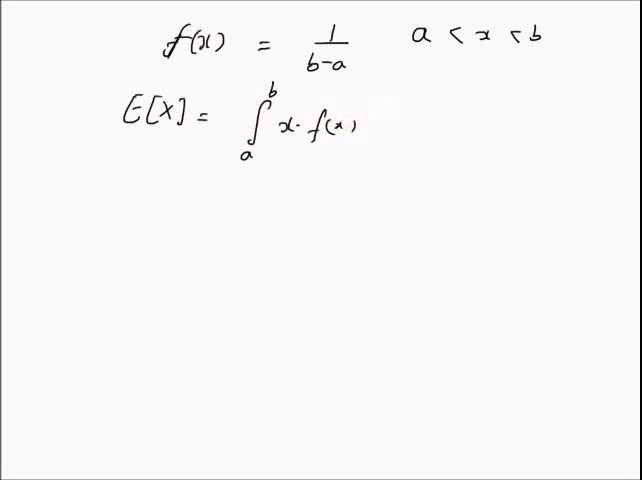 f(x) = 1/(b-a) a < x < b
E[X] = ∫_a^b x. f(x)